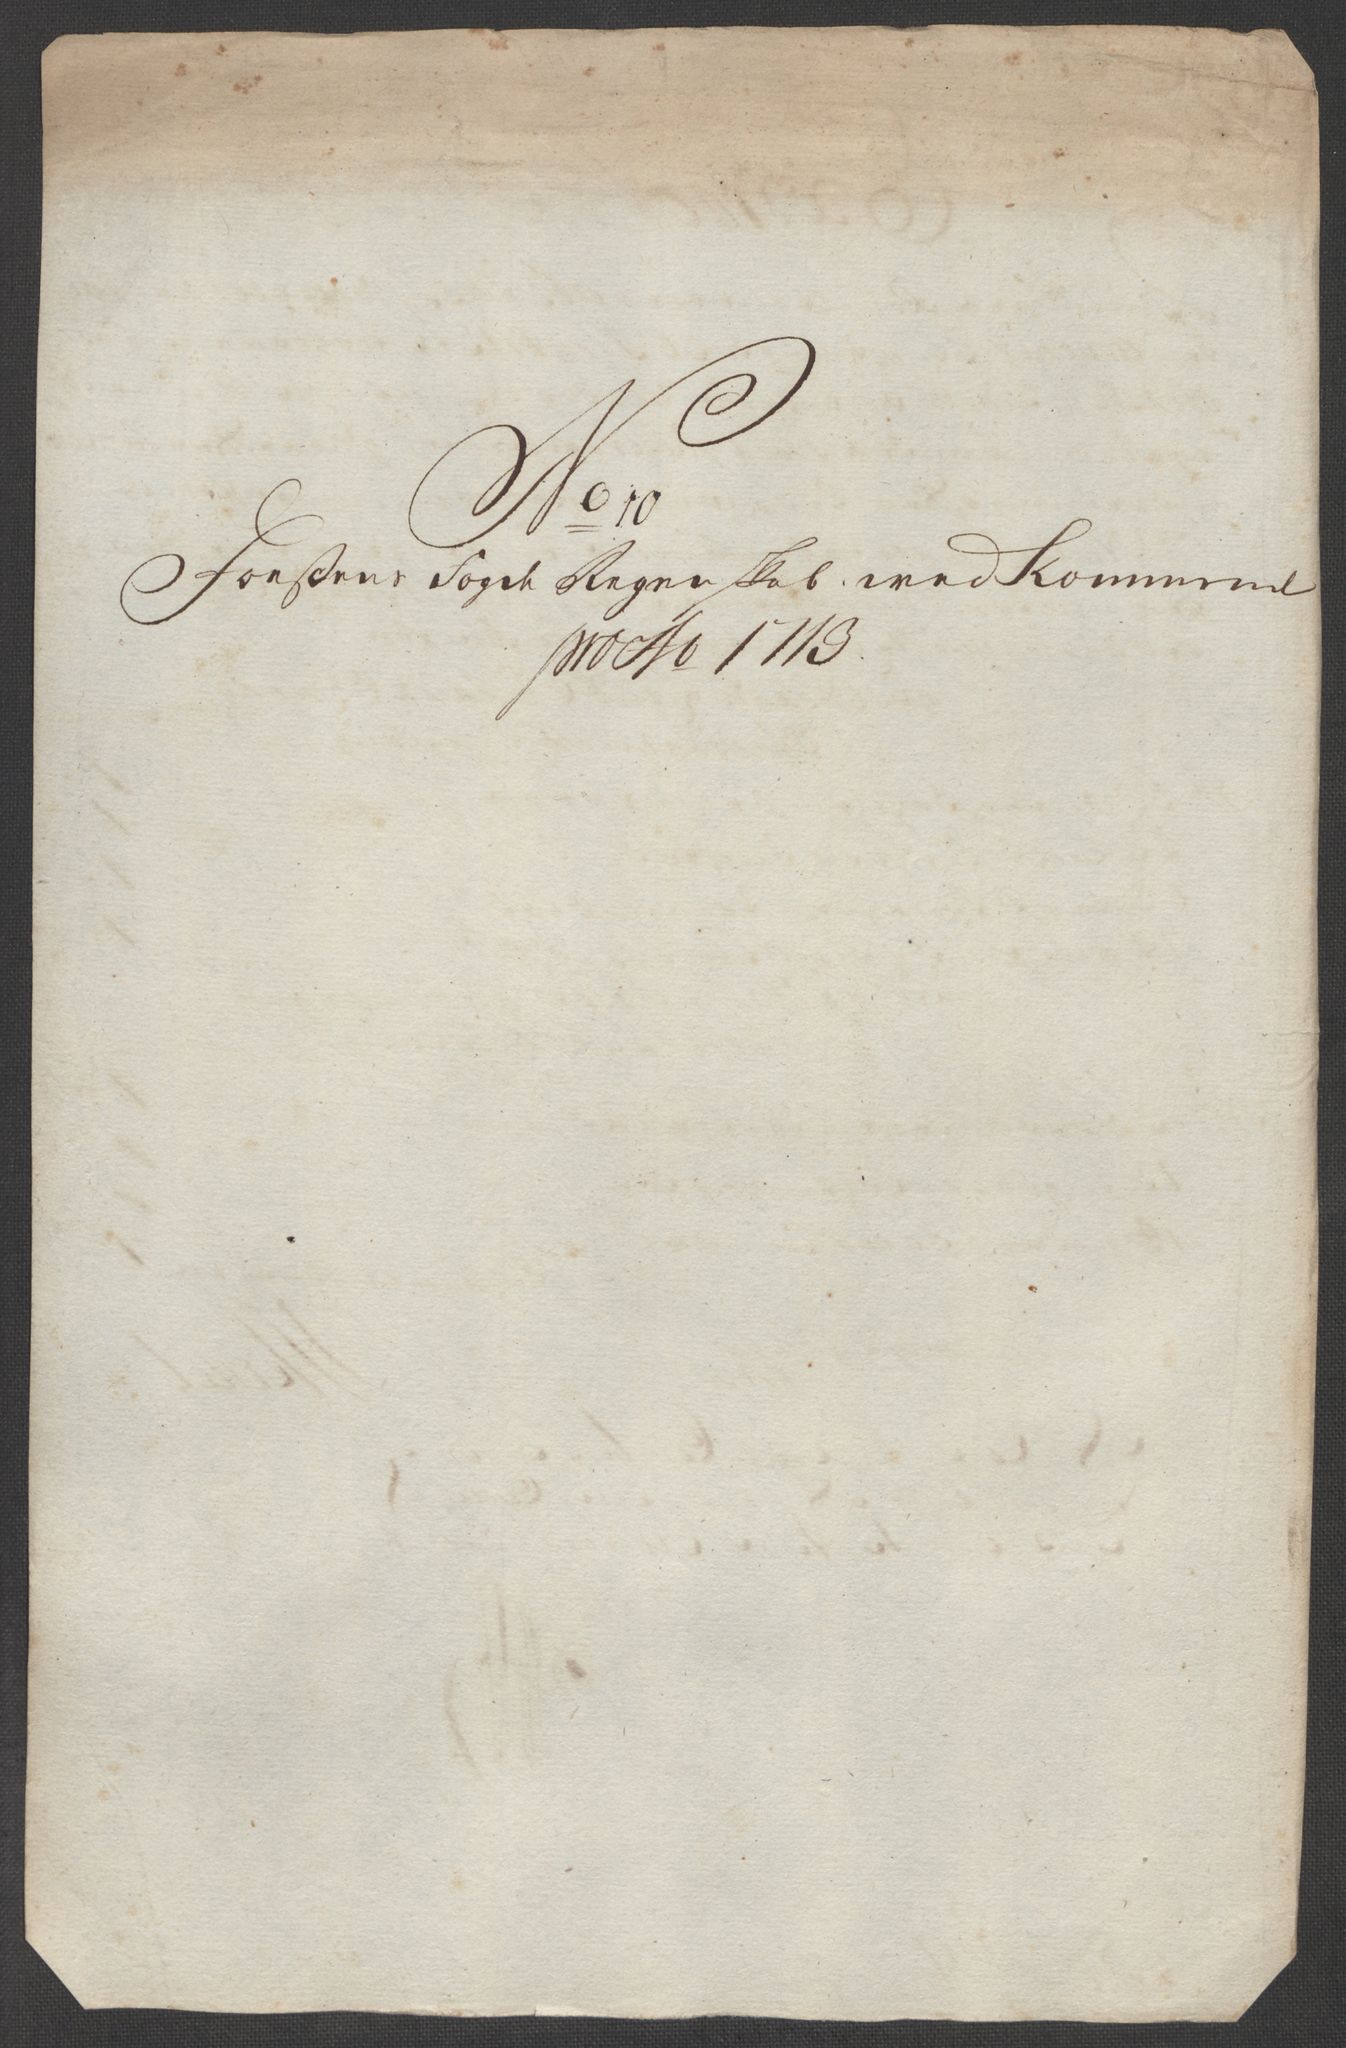 No 10
Foesens fogde Regenskab ved Kommende
pro Ao 1713.